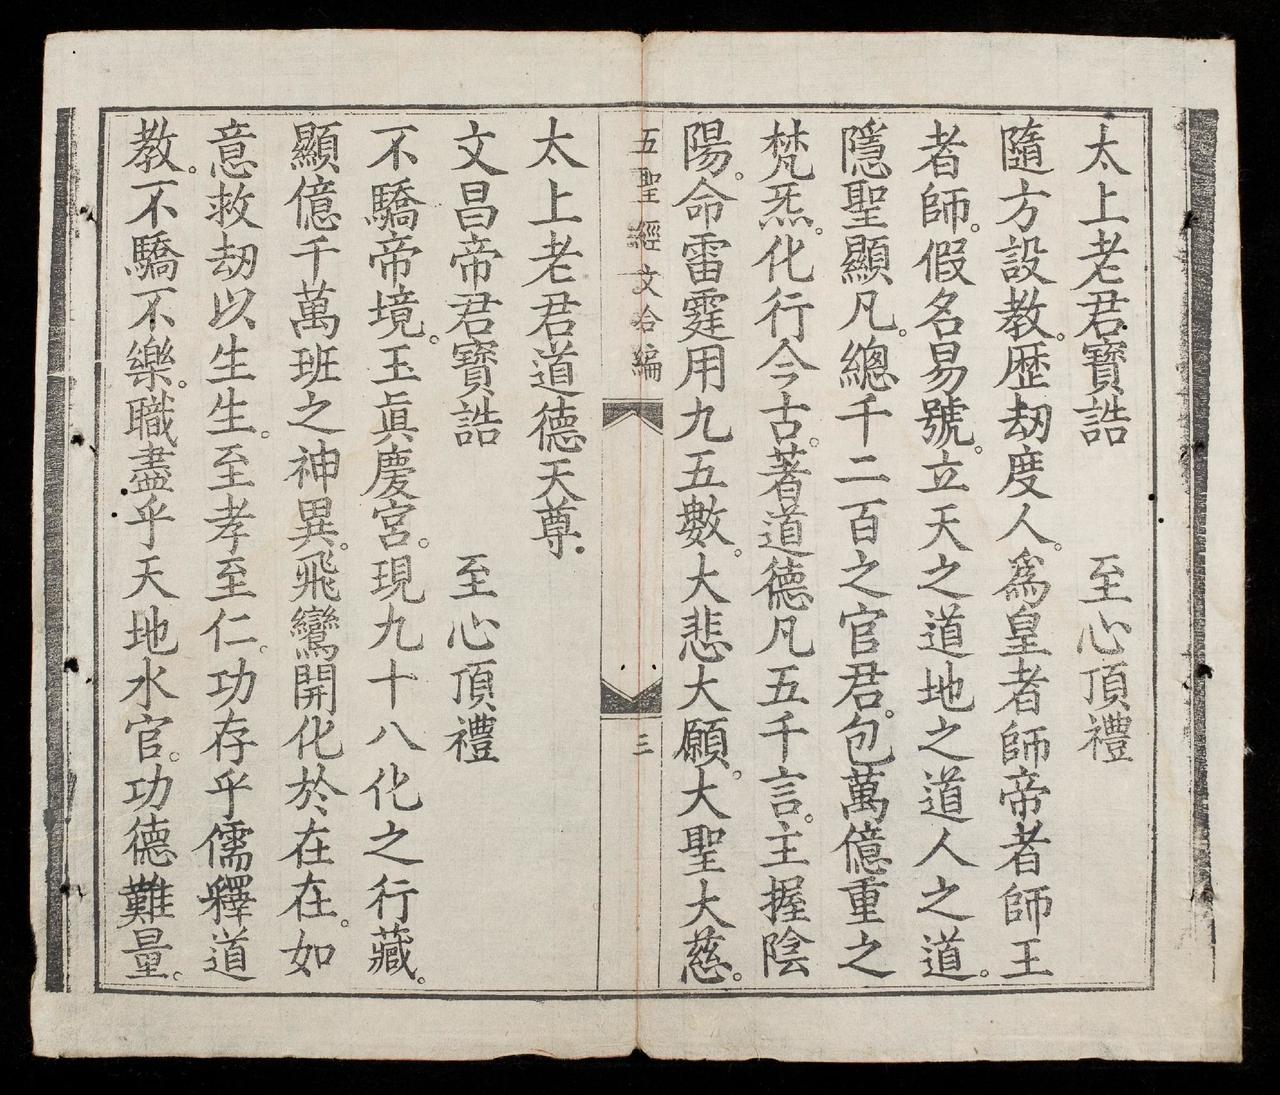 太上老君寶誥　　至心頂禮
隨方設教。歷劫度人。爲皇者師帝者師王
者師。假名易號。立天之道地之道人之道。
隱聖顯凡。總千二百之官君。包萬億重之
梵炁。化行今古。著道德凡五千言。主握陰
陽。命雷霆用九五數。大悲大願。大聖大慈。
五聖經文合編
三
太上老君道德天尊.
文昌帝君寶誥　　至心頂禮
不驕帝境。玉眞慶宮。現九十八化之行藏。
顯億千萬班之神異。飛鸞開化於在在。如
意救劫以生生。至孝至仁。功存乎儒釋道
教。不驕不樂。職盡乎天地水官。功德難量。